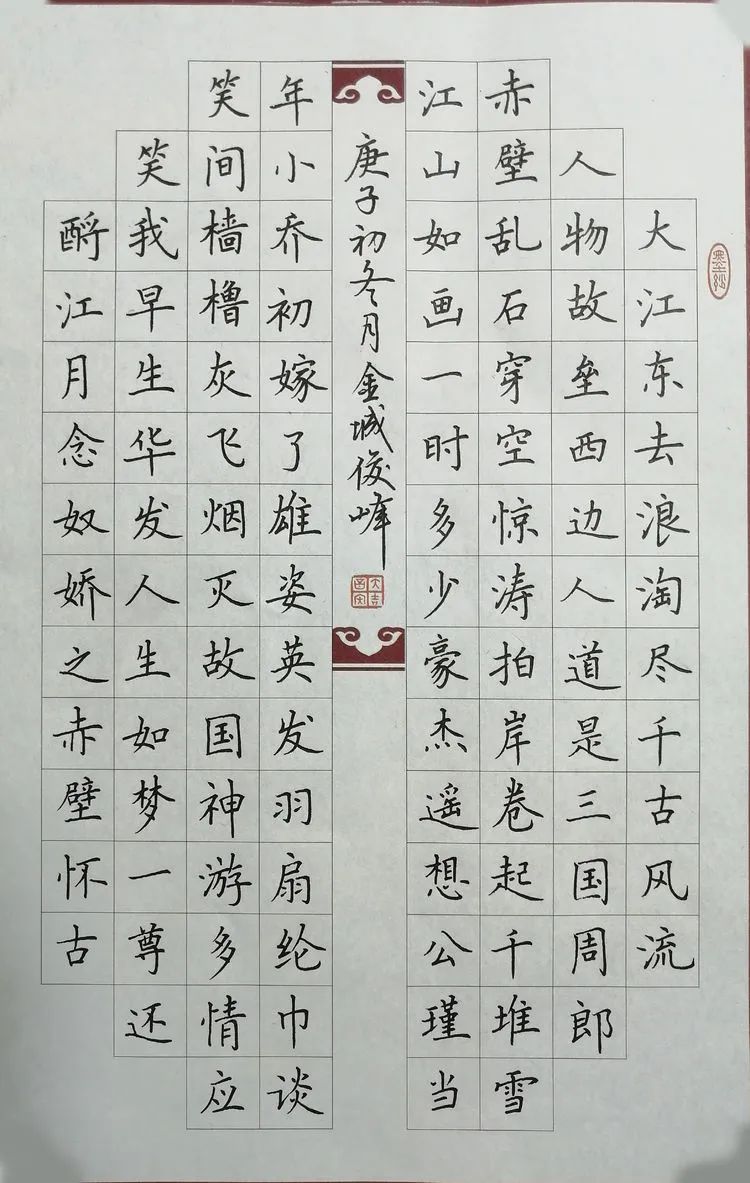 大江东去浪淘尽千古风流
人物故垒西边人道是三国周郎
赤壁乱石穿空惊涛拍岸卷起千堆雪
江山如画一时多少豪杰遥想公瑾当
庚子初冬月金城俊峰
年小乔初嫁了雄姿英发羽扇纶巾谈
笑间樯橹灰飞烟灭故国神游多情应
笑我早生华发人生如梦一尊还
酹江月念奴娇之赤壁怀古